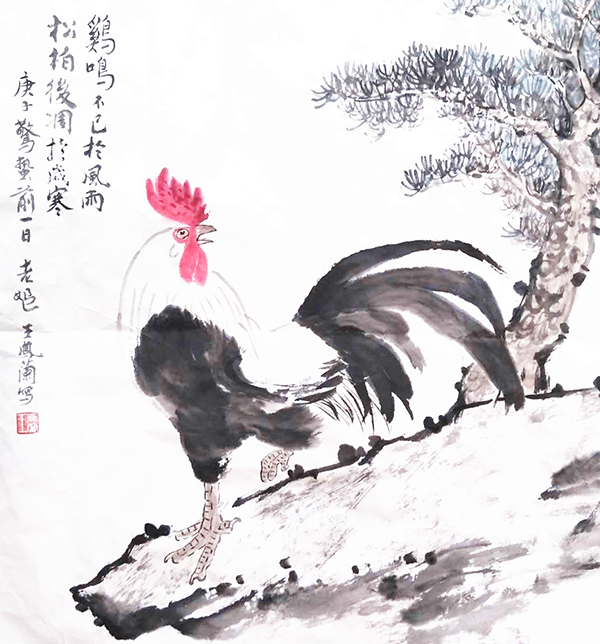 鷄鳴不已於風雨
松柏後凋於歲寒
庚子驚蟄前一日 老娘 王鳳蘭寫